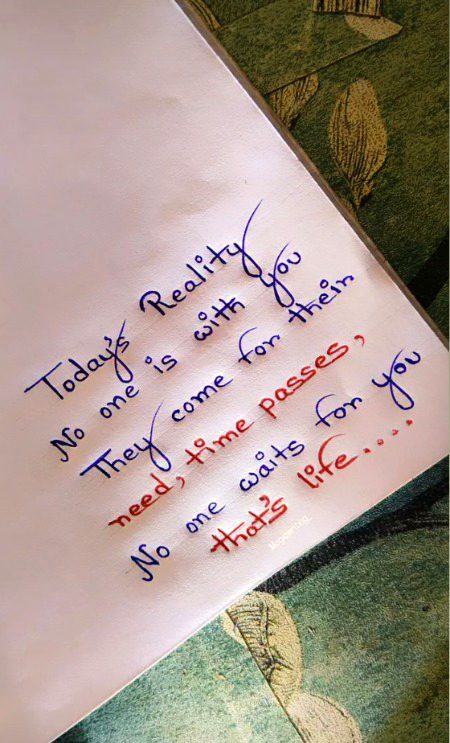 Today's Reality
No one is with you
They come for their
need, time passes,
No one waits for you
that's life....